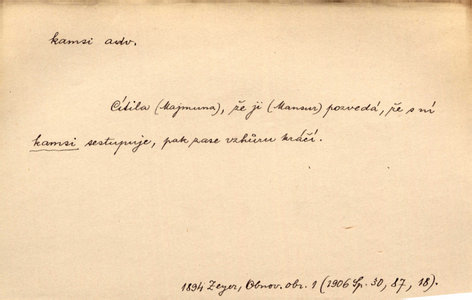 kamsi adv.
Cítila (Majmuna), že ji (Mansur) pozvedá, že s ní
kamsi sestupuje, pak zase vzhůru kráčí.
1894 Zeyer, Obnov. obr. 1 (1906 Sp. 30, 87, 18).